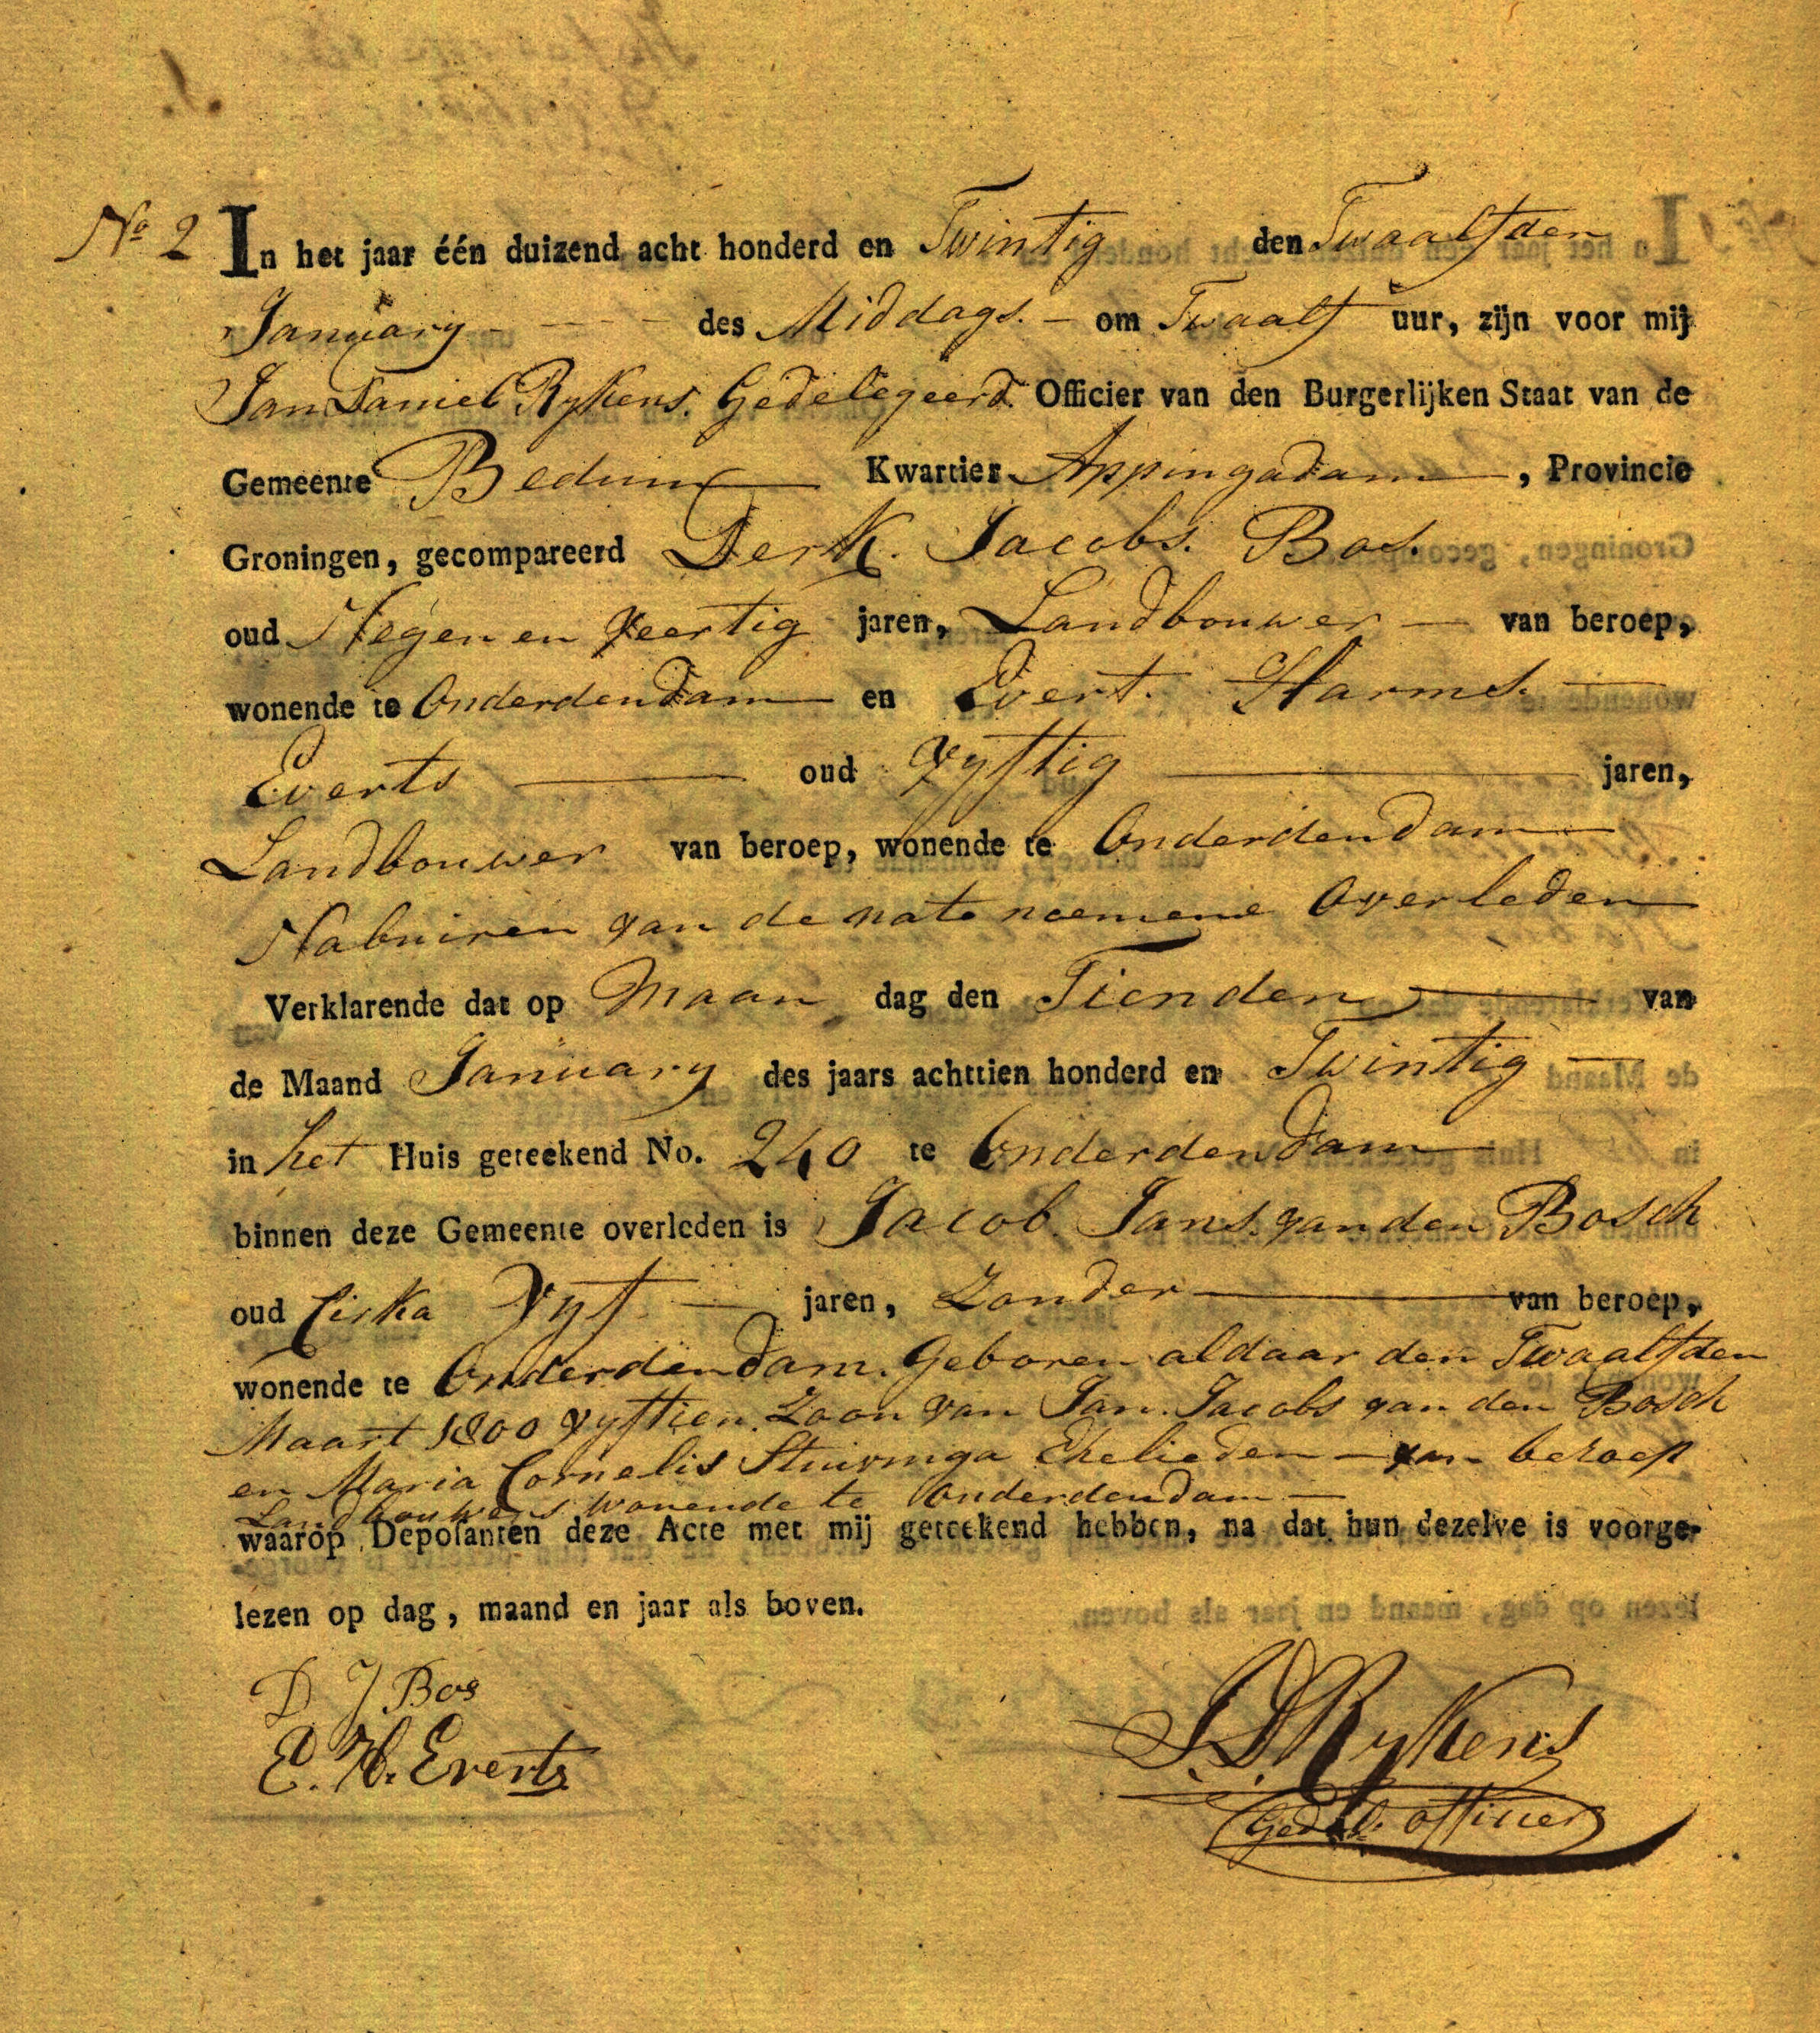 No 2 In het jaar één duizend acht honderd en Twintig den Twaalfden
January - - - des Middags. - om Twaalf uur, zijn voor mij
Jan Daniel Rykens. Gedelegeerd. Officier van den Burgerlijken Staat van de
Gemeente Bedum Kwartier Appingadam, Provincie
Groningen, gecompareerd Derk. Jacobs. Bos.
oud Negen en veertig jaren, Landbouwer — van beroep,
wonende te Onderdendam en Evert. Harms. —
Everts — oud Vyftig — jaren,
Landbouwer van beroep, wonende te Onderdendam
Nabuiren van de nate noemene Overleden
Verklarende dat op Maan dag den Tienden — van
de Maand January des jaars achttien honderd en Twintig —
in het Huis geteekend No. 240 te Onderdendam
binnen deze Gemeente overleden is Jacob. Jans. van den Bosch
oud Cirka Vyf — jaren, Zonder — van beroep,
wonende te Onderdendam. Geboren aldaar den Twaalfden
Maart 1800 vyftien. Zoon van Jan. Jacobs van den Bosch
en Maria Cornelis Stuivinga Ehelieden — van beroep
Landbouwers wonende te Onderdendam —
waarop Deposanten deze Acte met mij geteekend hebben, na dat hun dezelve is voorge-
lezen op dag, maand en jaar als boven.
D J Bos
E. H. Everts
J. D. Rykens
Gedel. officier